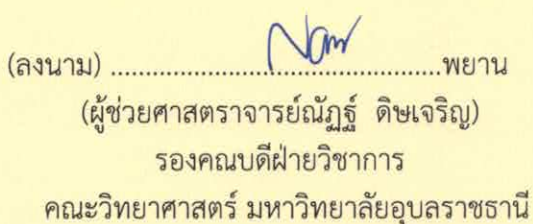 (ลงนาม) ................................................พยาน
(ผู้ช่วยศาสตราจารย์ณัฏฐ์ ดิษเจริญ)
รองคณบดีฝ่ายวิชาการ
คณะวิทยาศาสตร์ มหาวิทยาลัยอุบลราชธานี